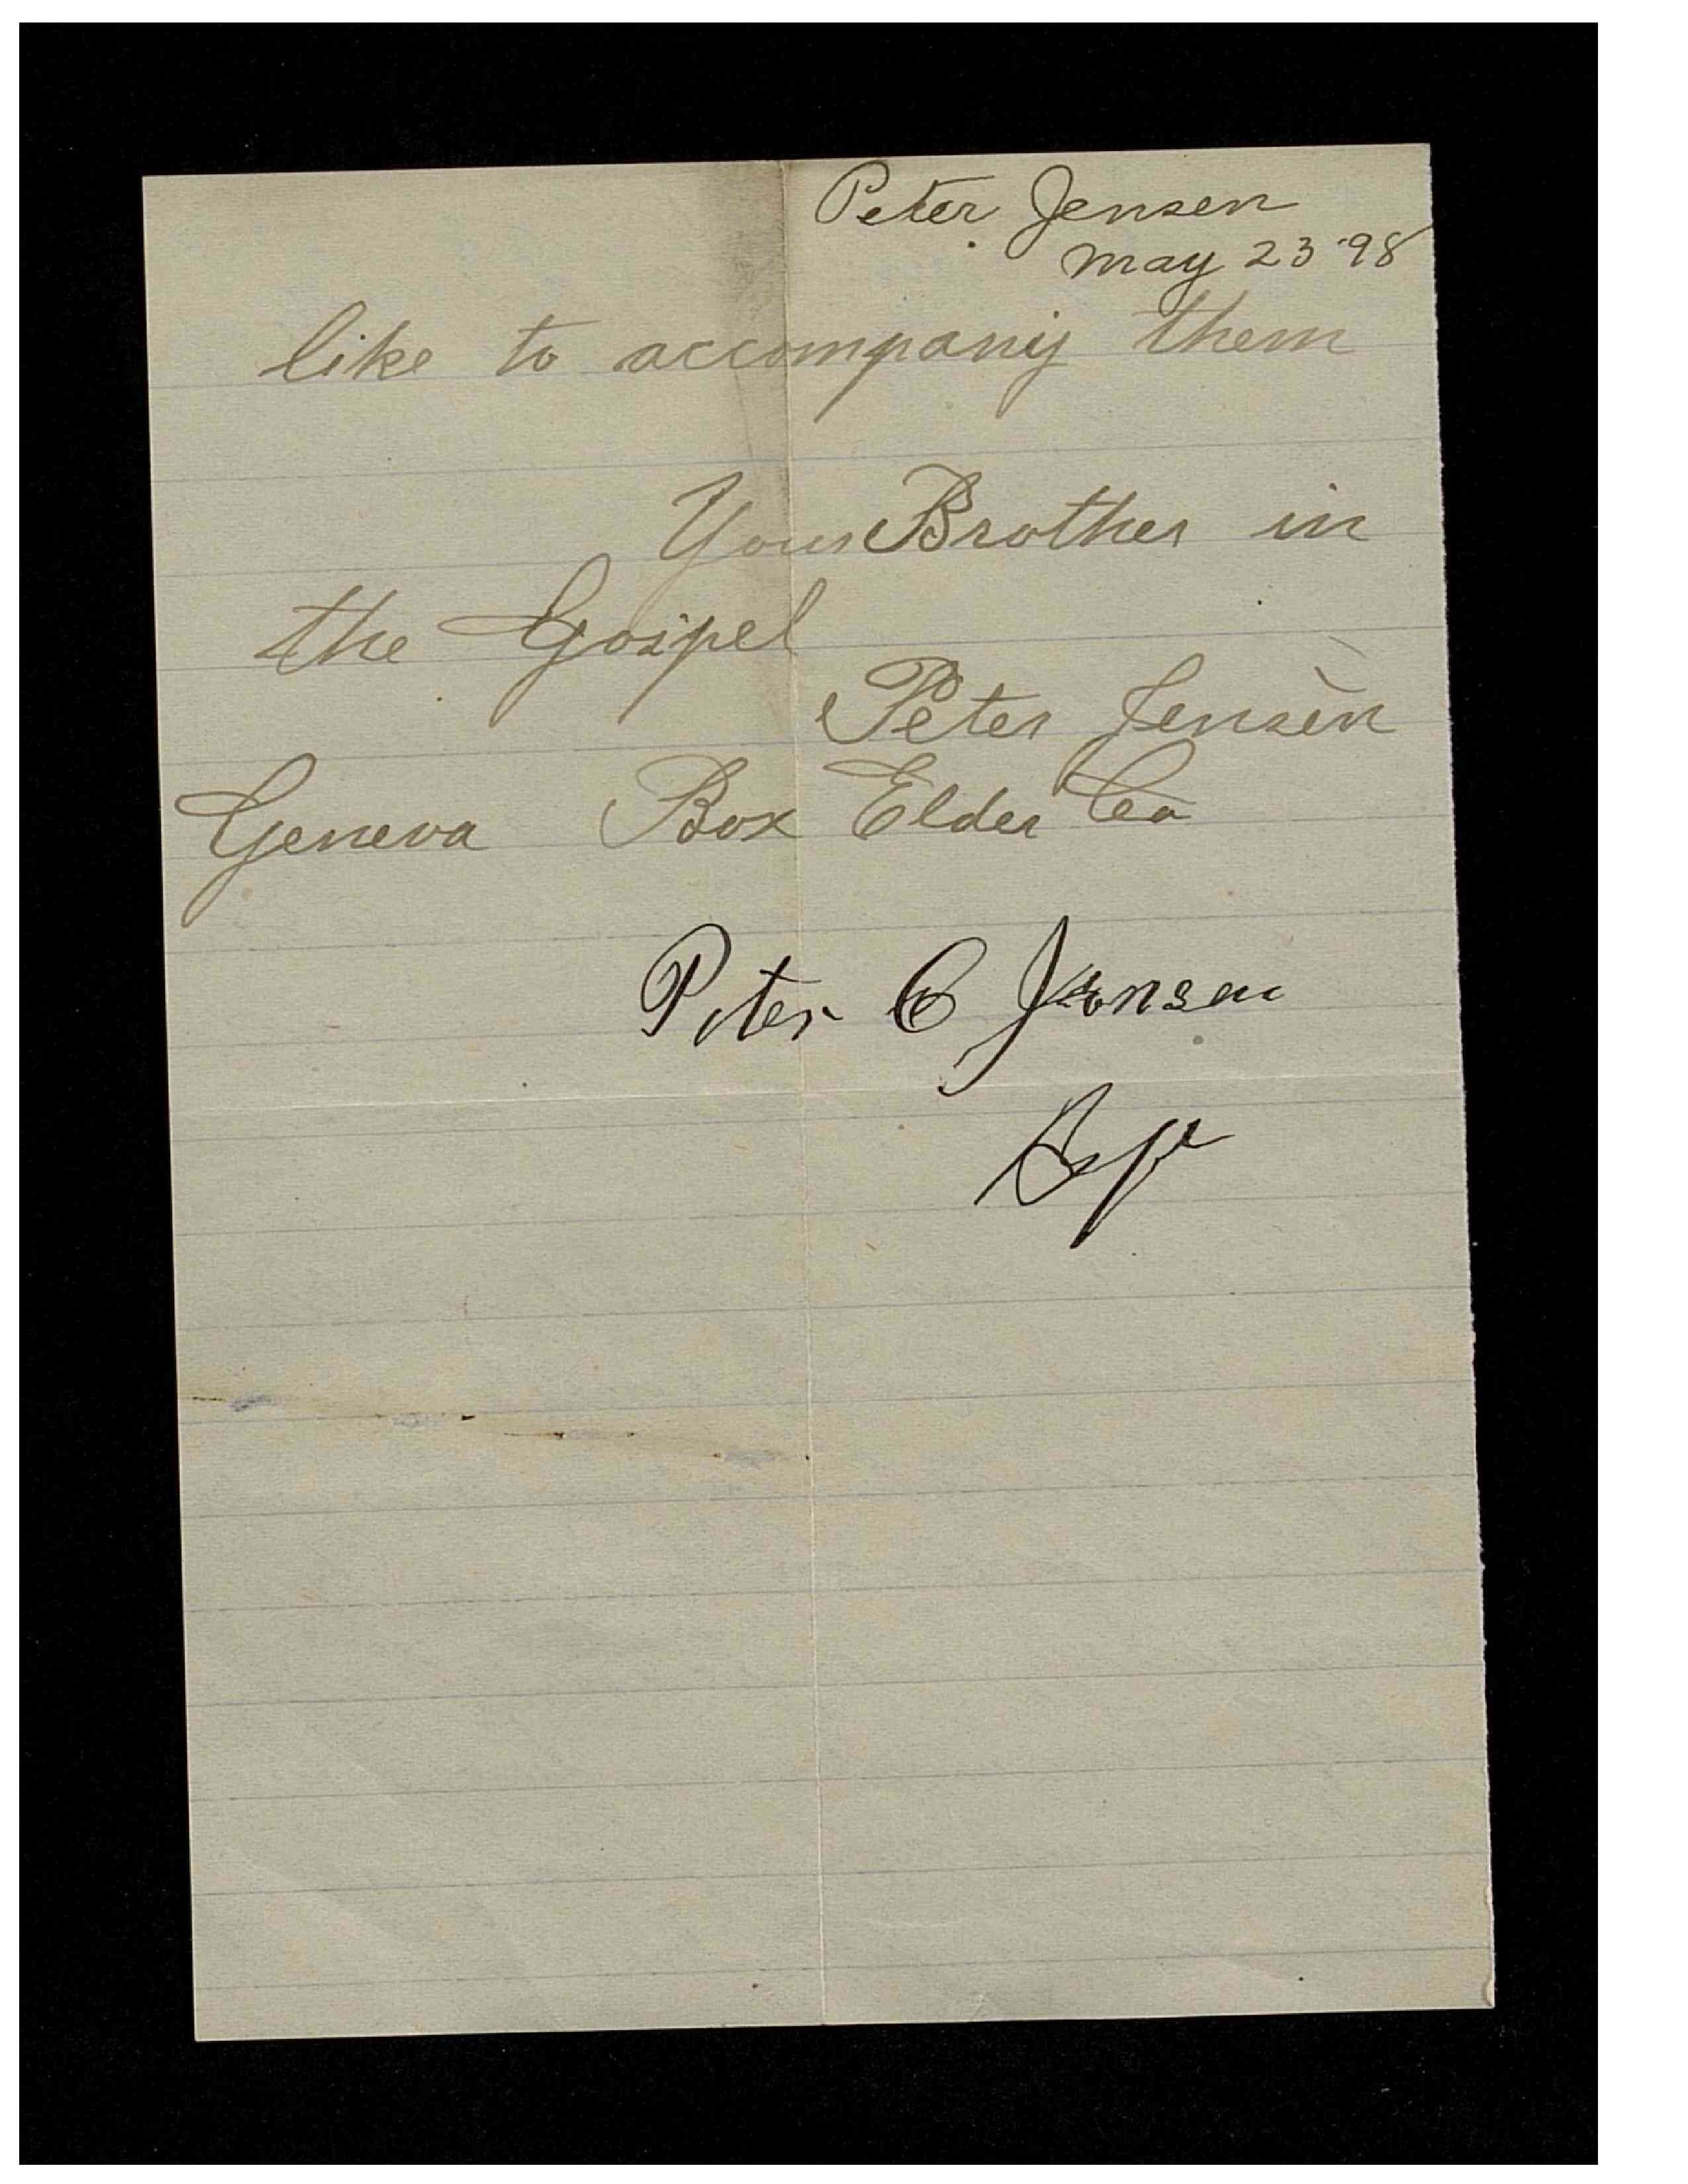 Peter Jensen
May 23 '98
like to accompany them
Your Brother in
the Gospel
Peter Jensen
Geneva Box Elder Co
Peter C Jensen
Bp